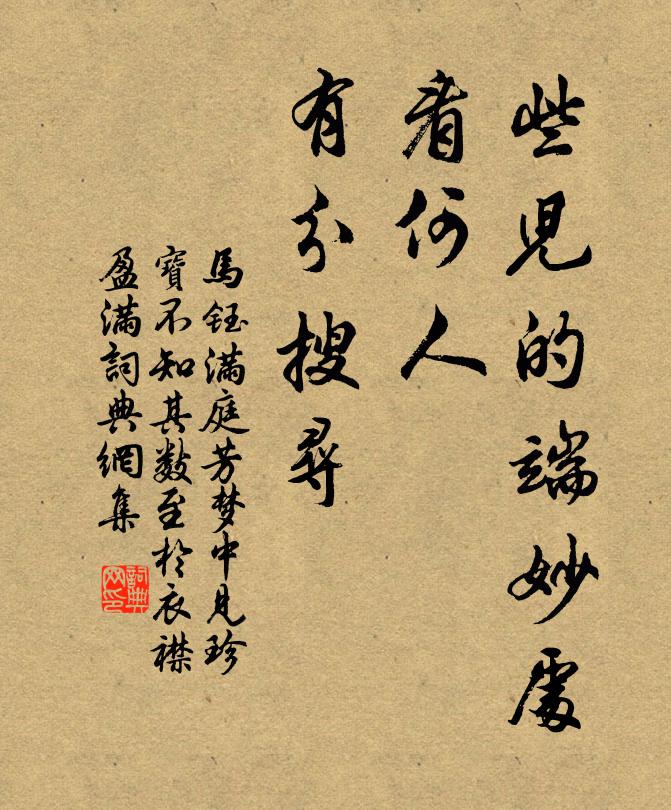 些兒的端妙處
看何人
有分搜尋
馬鈺滿庭芳梦中見珍
寶不知其数至於衣襟
盈滿詞典網集
詞典
网印